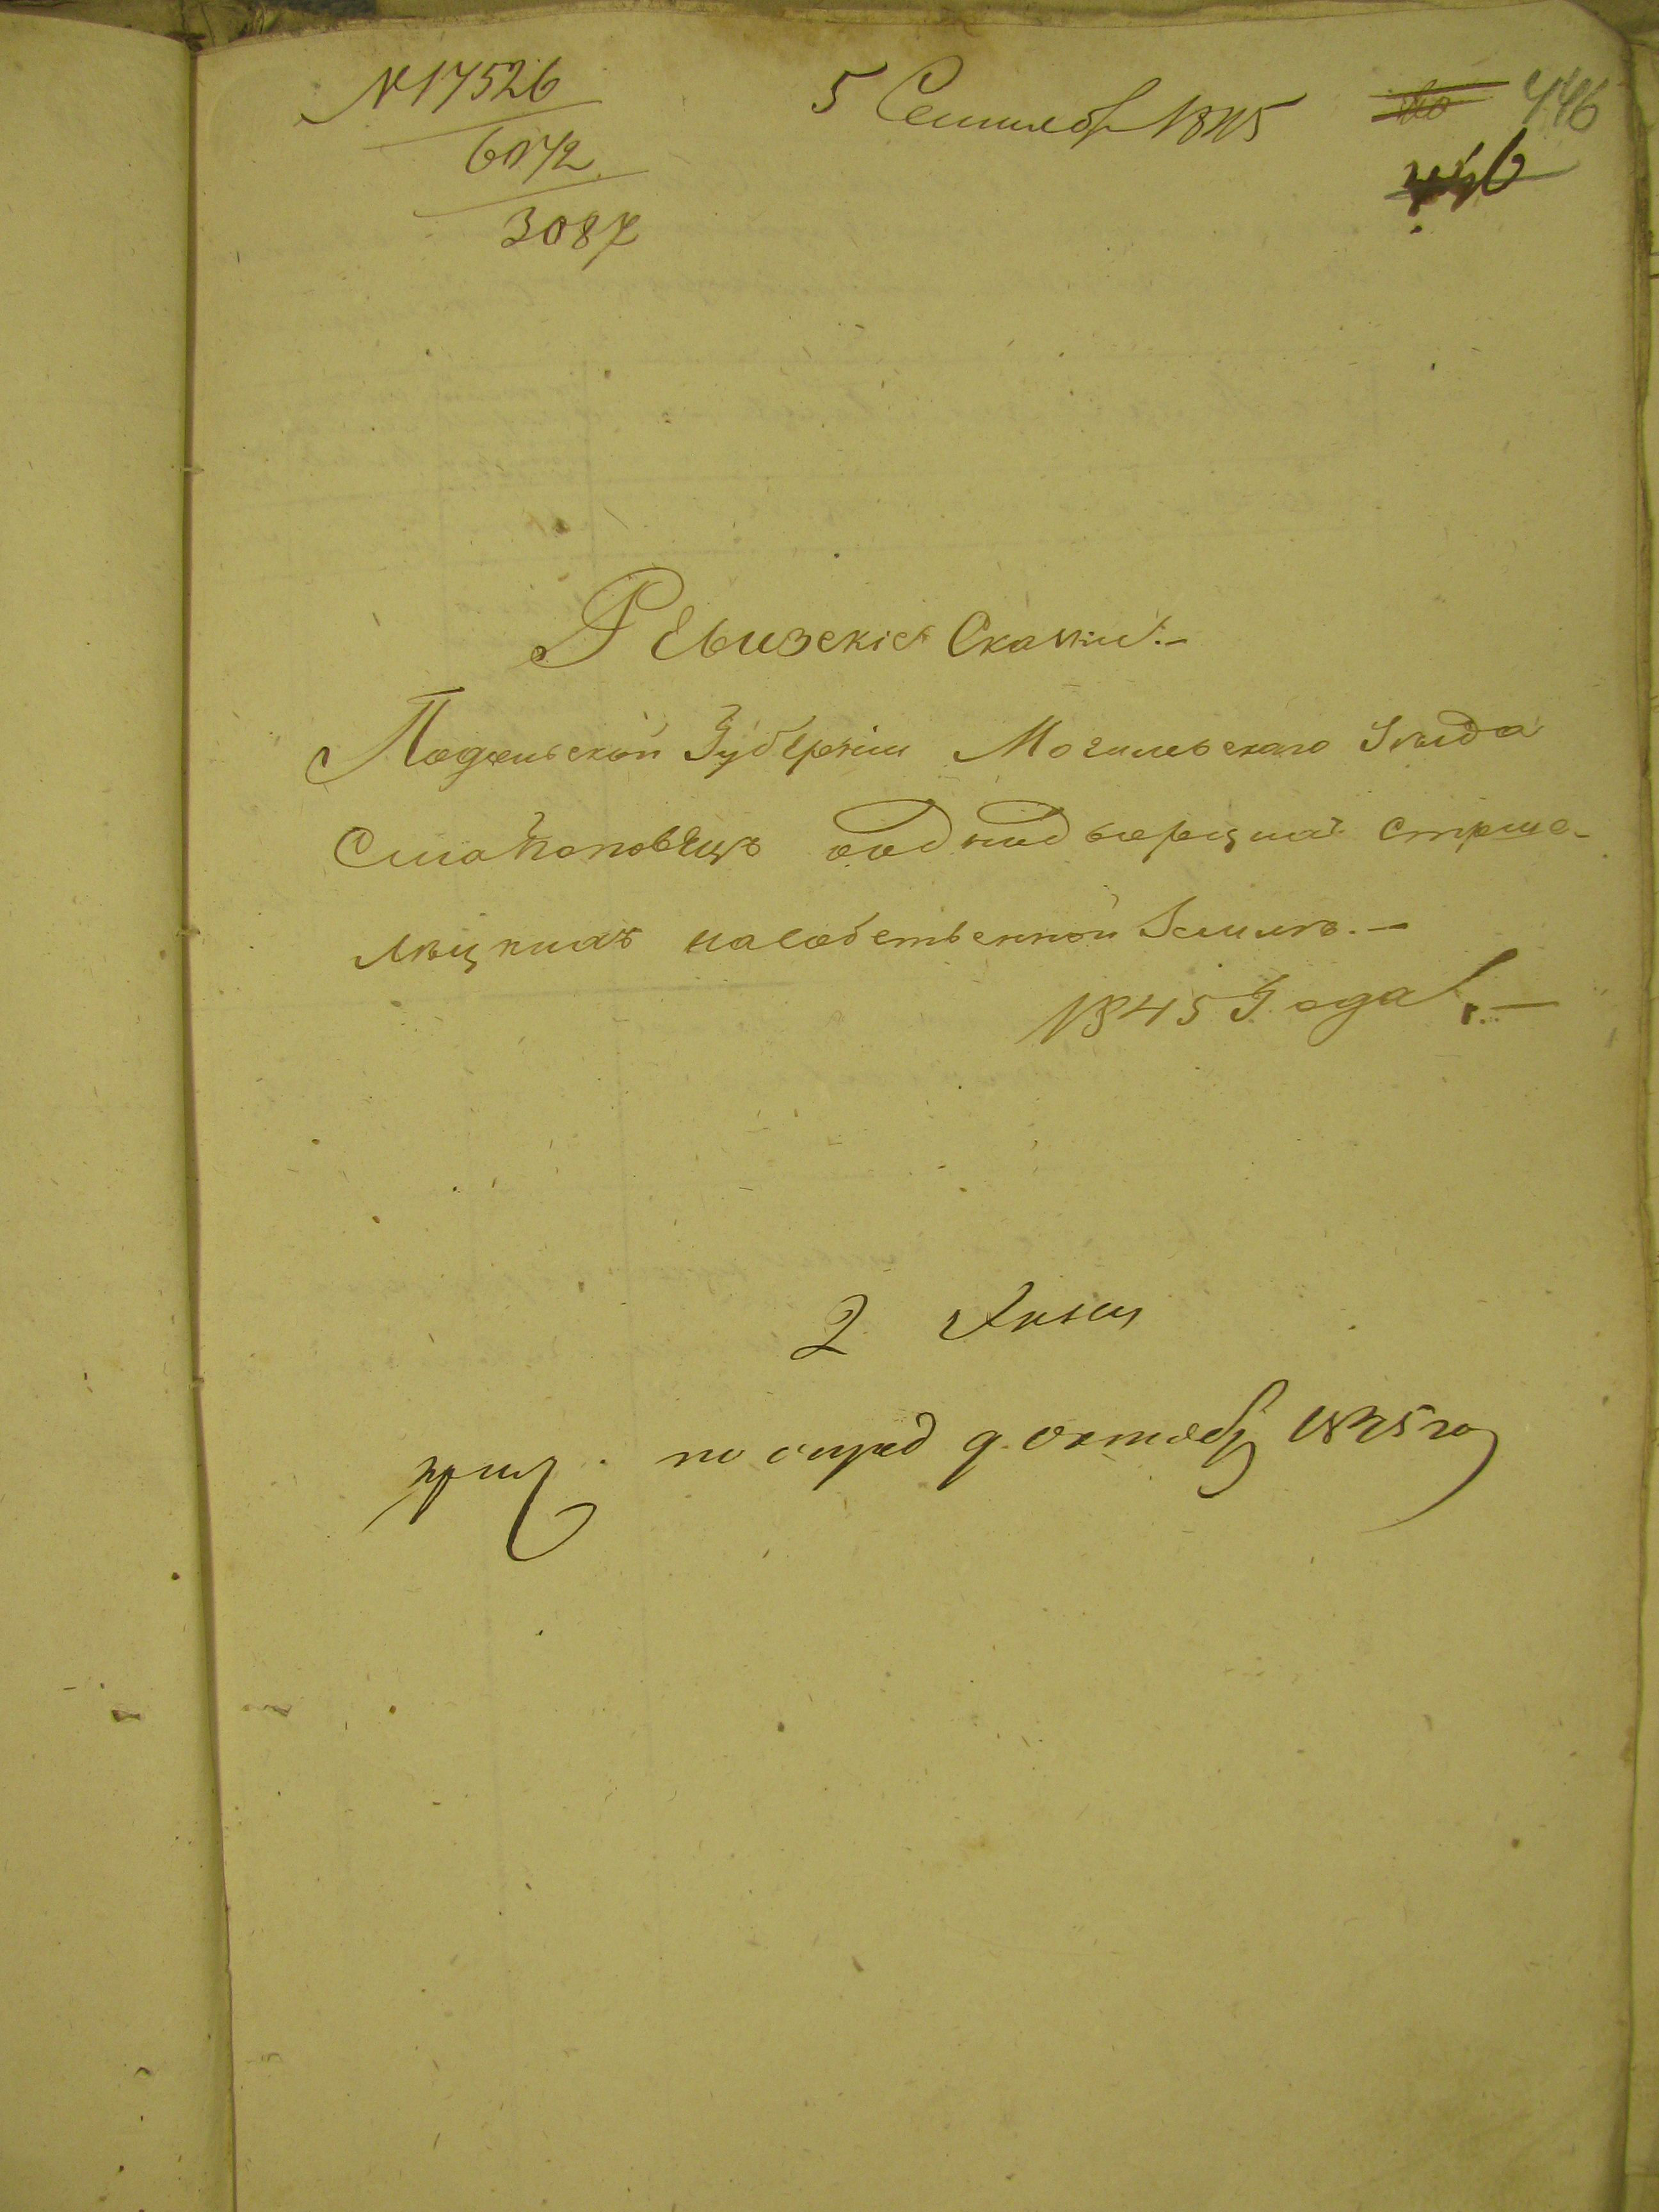 № 17526
6072
3087
5 Сентября 1845
446
Ревизскіе Сказки.—
Подольской Губерніи Могилевского Уѣзда
Села Поповецъ однодворцовъ Стрше-
лецкихъ на собственной Землѣ.—
1845 Года.—
2 Экзем
по опред 9 Октябр 1845 го